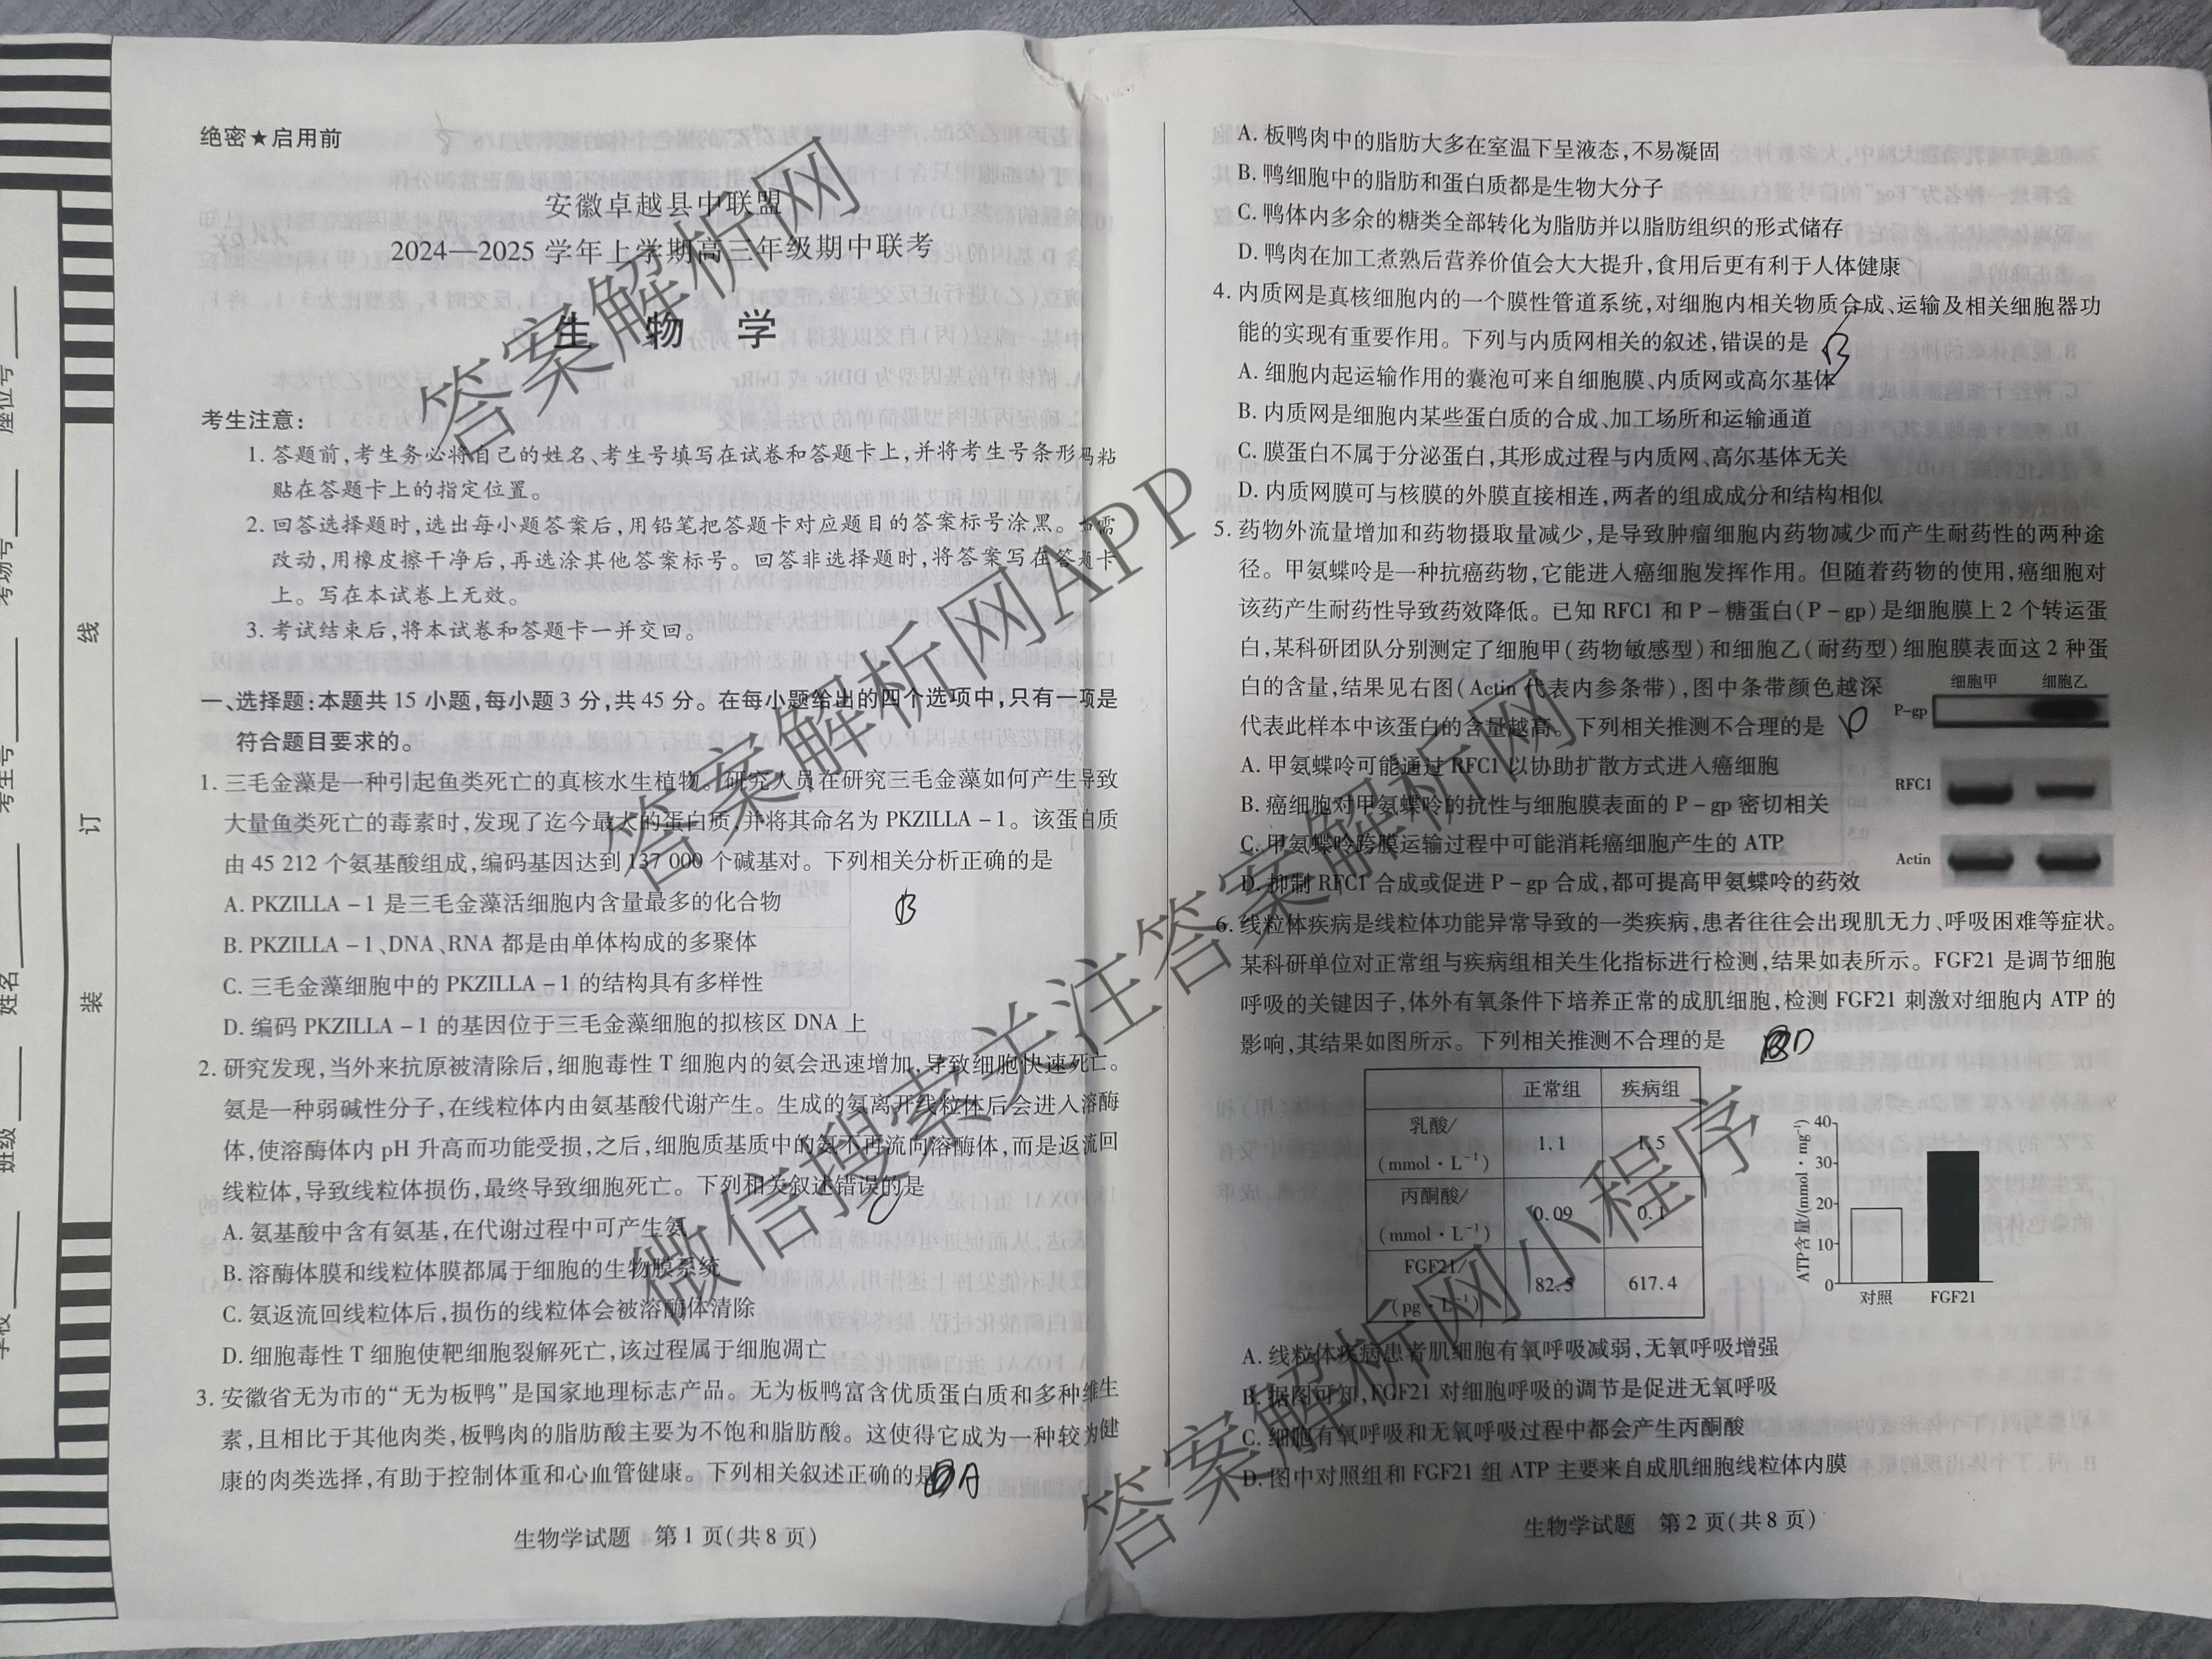 绝密★启用前
安徽卓越县中联盟
2024—2025 学年上学期高三年级期中联考
生 物 学
考生注意：
1. 答题前,考生务必将自己的姓名、考生号填写在试卷和答题卡上,并将考生号条形码粘
贴在答题卡上的指定位置。
2. 回答选择题时,选出每小题答案后,用铅笔把答题卡对应题目的答案标号涂黑。 需
改动,用橡皮擦干净后,再选涂其他答案标号。回答非选择题时,将答案写在答题卡
上。写在本试卷上无效。
3. 考试结束后,将本试卷和答题卡一并交回。
一、选择题:本题共 15 小题,每小题 3 分,共 45 分。在每小题给出的四个选项中,只有一项是
符合题目要求的。
1. 三毛金藻是一种引起鱼类死亡的真核水生植物。研究人员在研究三毛金藻如何产生导致
大量鱼类死亡的毒素时,发现了迄今最大的蛋白质,并将其命名为 PKZILLA－1。该蛋白质
由 45 212 个氨基酸组成,编码基因达到 137 000 个碱基对。下列相关分析正确的是
A. PKZILLA－1 是三毛金藻活细胞内含量最多的化合物
B
B. PKZILLA－1、DNA、RNA 都是由单体构成的多聚体
C. 三毛金藻细胞中的 PKZILLA－1 的结构具有多样性
D. 编码 PKZILLA－1 的基因位于三毛金藻细胞的拟核区 DNA 上
2. 研究发现,当外来抗原被清除后,细胞毒性 T 细胞内的氨会迅速增加,导致细胞快速死亡。
氨是一种弱碱性分子,在线粒体内由氨基酸代谢产生。生成的氨离开线粒体后会进入溶酶
体,使溶酶体内 pH 升高而功能受损,之后,细胞质基质中的氨不再流向溶酶体,而是返流回
线粒体,导致线粒体损伤,最终导致细胞死亡。下列相关叙述错误的是
C
A. 氨基酸中含有氨基,在代谢过程中可产生氨
B. 溶酶体膜和线粒体膜都属于细胞的生物膜系统
C. 氨返流回线粒体后,损伤的线粒体会被溶酶体清除
D. 细胞毒性 T 细胞使靶细胞裂解死亡,该过程属于细胞凋亡
3. 安徽省无为市的“无为板鸭”是国家地理标志产品。无为板鸭富含优质蛋白质和多种维生
素,且相比于其他肉类,板鸭肉的脂肪酸主要为不饱和脂肪酸。这使得它成为一种较为健
康的肉类选择,有助于控制体重和心血管健康。下列相关叙述正确的是
A
生物学试题 第 1 页(共 8 页)
A. 板鸭肉中的脂肪大多在室温下呈液态,不易凝固
B. 鸭细胞中的脂肪和蛋白质都是生物大分子
C. 鸭体内多余的糖类全部转化为脂肪并以脂肪组织的形式储存
D. 鸭肉在加工煮熟后营养价值会大大提升,食用后更有利于人体健康
4. 内质网是真核细胞内的一个膜性管道系统,对细胞内相关物质合成、运输及相关细胞器功
能的实现有重要作用。下列与内质网相关的叙述,错误的是
B
A. 细胞内起运输作用的囊泡可来自细胞膜、内质网或高尔基体
B. 内质网是细胞内某些蛋白质的合成、加工场所和运输通道
C. 膜蛋白不属于分泌蛋白,其形成过程与内质网、高尔基体无关
D. 内质网膜可与核膜的外膜直接相连,两者的组成成分和结构相似
5. 药物外流量增加和药物摄取量减少,是导致肿瘤细胞内药物减少而产生耐药性的两种途
径。甲氨蝶呤是一种抗癌药物,它能进入癌细胞发挥作用。但随着药物的使用,癌细胞对
该药产生耐药性导致药效降低。已知 RFC1 和 P－糖蛋白(P－gp)是细胞膜上 2 个转运蛋
白,某科研团队分别测定了细胞甲(药物敏感型)和细胞乙(耐药型)细胞膜表面这 2 种蛋
白的含量,结果见右图(Actin 代表内参条带),图中条带颜色越深
代表此样本中该蛋白的含量越高。下列相关推测不合理的是
D
细胞甲 细胞乙
P-gp
RFC1
Actin
A. 甲氨蝶呤可能通过 RFC1 以协助扩散方式进入癌细胞
B. 癌细胞对甲氨蝶呤的抗性与细胞膜表面的 P－gp 密切相关
C. 甲氨蝶呤跨膜运输过程中可能消耗癌细胞产生的 ATP
D. 抑制 RFC1 合成或促进 P－gp 合成,都可提高甲氨蝶呤的药效
6. 线粒体疾病是线粒体功能异常导致的一类疾病,患者往往会出现肌无力、呼吸困难等症状。
某科研单位对正常组与疾病组相关生化指标进行检测,结果如表所示。FGF21 是调节细胞
呼吸的关键因子,体外有氧条件下培养正常的成肌细胞,检测 FGF21 刺激对细胞内 ATP 的
影响,其结果如图所示。下列相关推测不合理的是
D
正常组 疾病组
乳酸/(mmol·L⁻¹) 1.1 1.5
丙酮酸/(mmol·L⁻¹) 0.09 0.1
FGF21/(pg·L⁻¹) 82.5 617.4
ATP含量/(mmol·mg⁻¹)
40
30
20
10
0
对照 FGF21
A. 线粒体疾病患者肌细胞有氧呼吸减弱,无氧呼吸增强
B. 据图可知,FGF21 对细胞呼吸的调节是促进无氧呼吸
C. 细胞有氧呼吸和无氧呼吸过程中都会产生丙酮酸
D. 图中对照组和 FGF21 组 ATP 主要来自成肌细胞线粒体内膜
生物学试题 第 2 页(共 8 页)
座位号
考场号
考生号
姓名
班级
学校
线
订
装
答案解析网
答案解析网APP
微信搜索关注答案解析网
答案解析网小程序